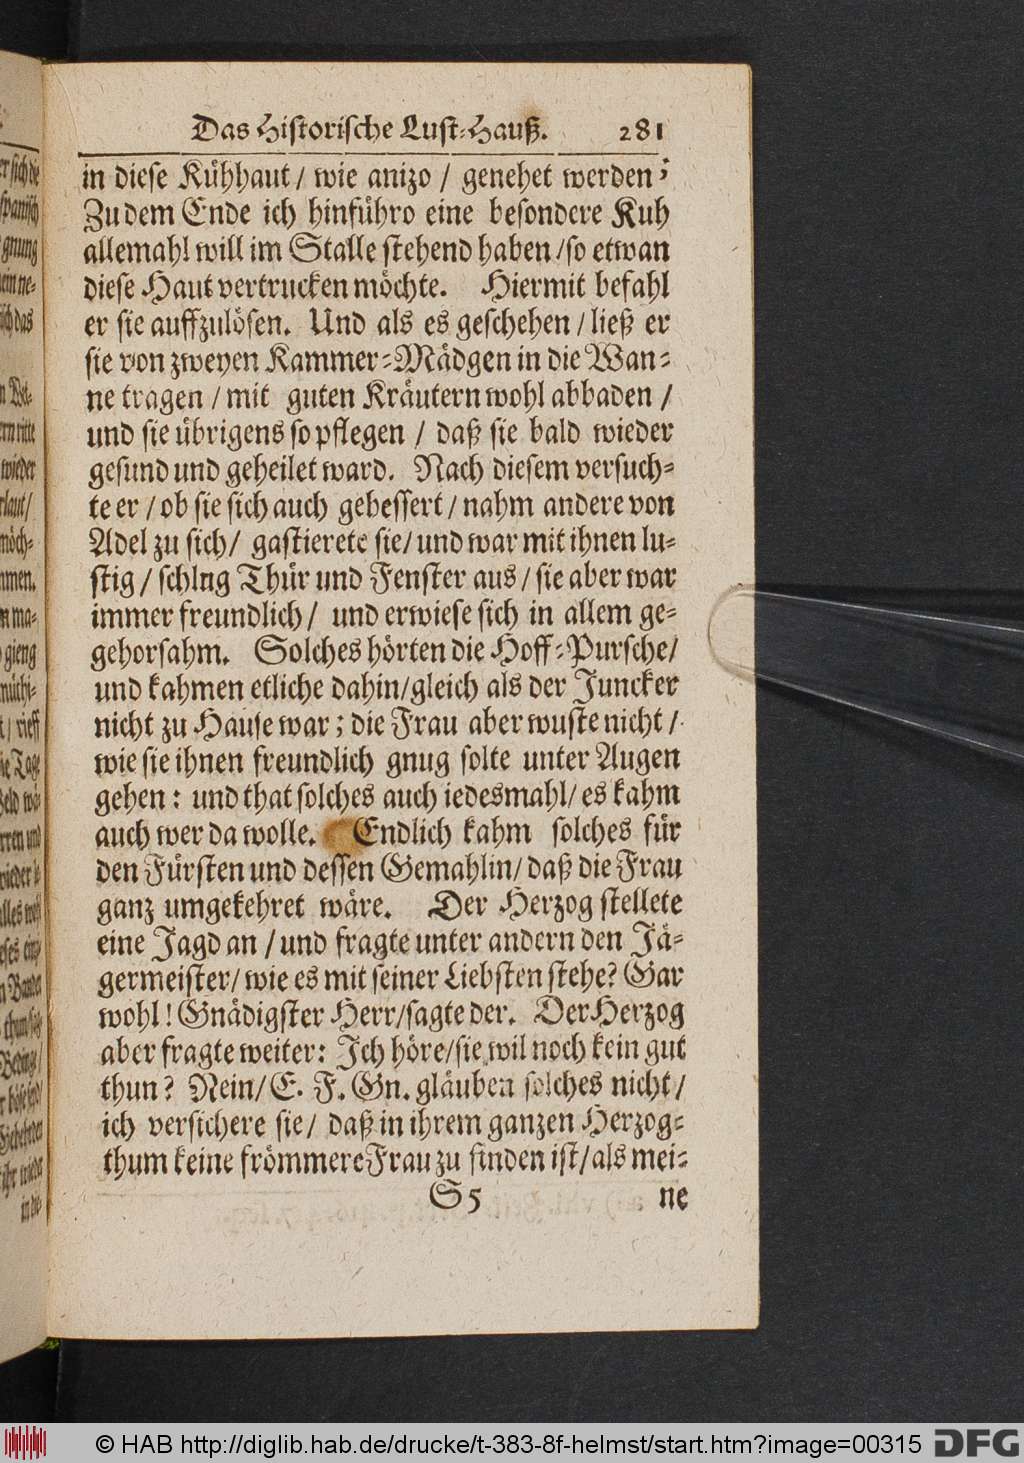 Das Historische Lust-Hauß. 281
in diese Kühhaut / wie anizo / genehet werden;
Zu dem Ende ich hinführo eine besondere Kuh
allemahl will im Stalle stehend haben / so etwan
diese Haut vertrucken möchte. Hiermit befahl
er sie auffzulösen. Und als es geschehen / ließ er
sie von zweyen Kammer-Mädgen in die Wan-
ne tragen / mit guten Kräutern wohl abbaden /
und sie übrigens so pflegen / daß sie bald wieder
gesund und geheilet ward. Nach diesem versuch-
te er / ob sie sich auch gebessert / nahm andere von
Adel zu sich / gastierete sie / und war mit ihnen lu-
stig / schlng Thür und Fenster aus / sie aber war
immer freundlich / und erwiese sich in allem ge-
gehorsahm. Solches hörten die Hoff-Pursche /
und kahmen etliche dahin / gleich als der Juncker
nicht zu Hause war; die Frau aber wuste nicht /
wie sie ihnen freundlich gnug solte unter Augen
gehen: und that solches auch iedesmahl / es kahm
auch wer da wolle. Endlich kahm solches für
den Fürsten und dessen Gemahlin / daß die Frau
ganz umgekehret wäre. Der Herzog stellete
eine Jagd an / und fragte unter andern den Jä-
germeister / wie es mit seiner Liebsten stehe? Gar
wohl! Gnädigster Herr / sagte der. Der Herzog
aber fragte weiter: Ich höre / sie wil noch kein gut
thun? Nein / E. F. Gn. gläuben solches nicht /
ich versichere sie / daß in ihrem ganzen Herzog-
thum keine frömmere Frau zu finden ist / als mei-
S 5 ne
© HAB http://diglib.hab.de/drucke/t-383-8f-helmst/start.htm?image=00315 DFG